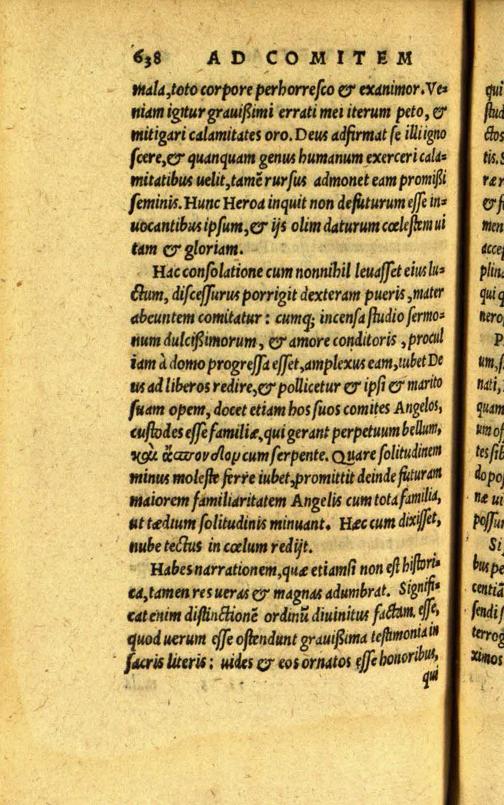 638 AD COMITEM
mala, toto corpore perhorresco & exanimor. Ve=
niam igitur grauißimi errati mei iterum peto, &
mitigari calamitates oro. Deus adfirmat se illi igno
scere, & quanquam genus humanum exerceri cala=
mitatibus uelit, tamẽ rursus admonet eam promißi
seminis. Hunc Heroa inquit non defuturum esse in=
uocantibus ipsum, & ijs olim daturum cœlestem ui
tam & gloriam.
Hac consolatione cum nonnihil leuasset eius lu=
ctum, discessurus porrigit dexteram pueris, mater
abeuntem comitatur: cumq; incensa studio sermo=
num dulcißimorum, & amore conditoris, procul
iam à domo progressa esset, amplexus eam, iubet De
us ad liberos redire, & pollicetur & ipsi & marito
suam opem, docet etiam hos suos comites Angelos,
custodes esse familiæ, qui gerant perpetuum bellum,
καὶ ἄσπονδον cum serpente. Quare solitudinem
minus moleste ferre iubet, promittit deinde futuram
maiorem familiaritatem Angelis cum tota familia,
ut tædium solitudinis minuant. Hæc cum dixisset,
nube tectus in cœlum redijt.
Habes narrationem, quæ etiamsi non est histori=
ca, tamen res ueras & magnas adumbrat. Signifi=
cat enim distinctionẽ ordinũ diuinitus factam esse,
quod uerum esse ostendunt grauißima testimonia in
sacris literis: uides & eos ornatos esse honoribus,
qui